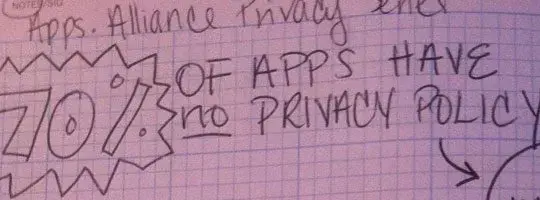 Apps. Alliance Privacy
70% OF APPS HAVE
no PRIVACY POLICY